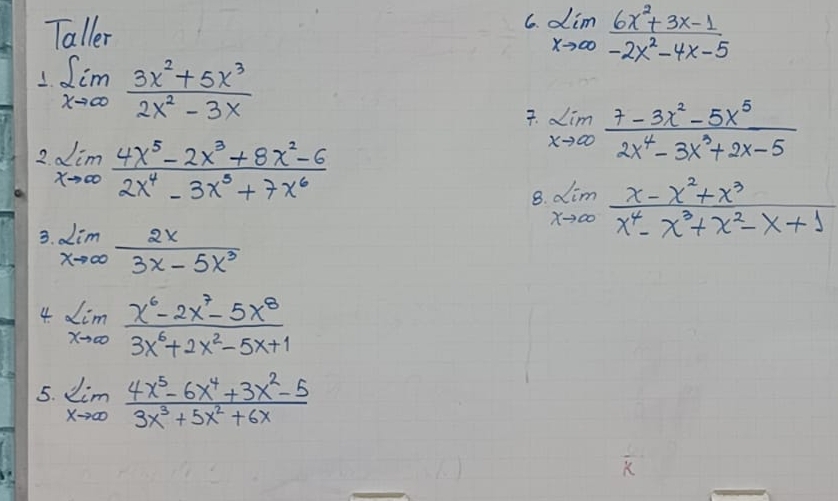 Taller
1. Lim x→∞ (3x² + 5x³)/(2x² - 3x)
2. Lim x→∞ (4x⁵ - 2x³ + 8x² - 6)/(2x⁴ - 3x⁵ + 7x⁶)
3. Lim x→∞ 2x/(3x - 5x³)
4. Lim x→∞ (x⁶ - 2x⁷ - 5x⁸)/(3x⁶ + 2x² - 5x + 1)
5. Lim x→∞ (4x⁵ - 6x⁴ + 3x² - 5)/(3x³ + 5x² + 6x)
6. Lim x→∞ (6x² + 3x - 1)/(-2x² - 4x - 5)
7. Lim x→∞ (7 - 3x² - 5x⁵)/(2x⁴ - 3x³ + 2x - 5)
8. Lim x→∞ (x - x² + x³)/(x⁴ - x³ + x² - x + 1)